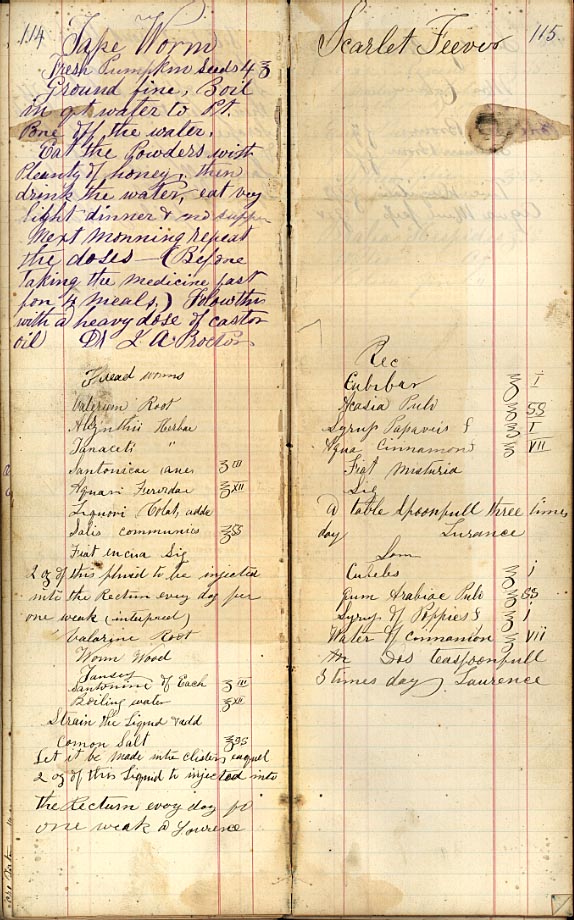 114
Tape Worm
Fresh Pumpkin Seeds 4 ℥
Ground fine, Boil
in qt water to Pt.
Pone off the water,
Eat the Powders with
Pleanty of honey, then
drink the water, eat very
light dinner & no supper
Next Monning repeat
the doses — (Before
taking the medicine fast
for 4 meals.) Folow this
with a heavy dose of castor
oil Dr L A Proctor
Thread worms
Valerum Root
Abzinthii Herbae
Tanaceti "
Santonicae ℥ III
Aquari Fervidae ℥ XII
Liquori Colat, adde
Salis communis ℥ss
Fiat Sig
2 oz of this fluid to be injected
into the Rectum every day for
one weak (interpred)
Valarine Root
Worm Wood
Tansey
Santonine of Each ℥ III
Boiling water ℥ XII
Strain the Liqud & add
Comon Salt ℥ss
Let it be made into Clisters
2 oz of this Liquid to injected into
the Rectum evey day for
one weak
115
Scarlet Feever
Rec
Cubebar ℥ I
Acasia Pulv ℥ SS
Syrup Papaveis ℥ I
Aqua Cinnamon ℥ VII
Fiat Misturia
Sig
a table Spoonfull three times
day Lurance
Cubebs ℥ j
Gum Arabiac Pulv ℥ SS
Syrup of Poppies ℥ j
Water of Cinnamon ℥ vii
Dos teaspoonfull
3 times day Laurence